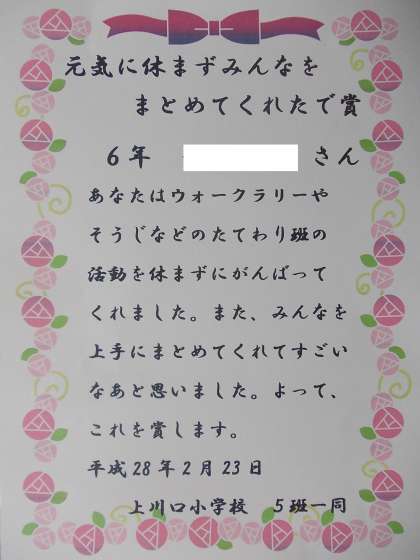 元気に休まずみんなを
まとめてくれたで賞
６年 さん
あなたはウォークラリーや
そうじなどのたてわり班の
活動を休まずにがんばって
くれました。また、みんなを
上手にまとめてくれてすごい
なあと思いました。よって、
これを賞します。
平成28年2月23日
上川口小学校 ５班一同